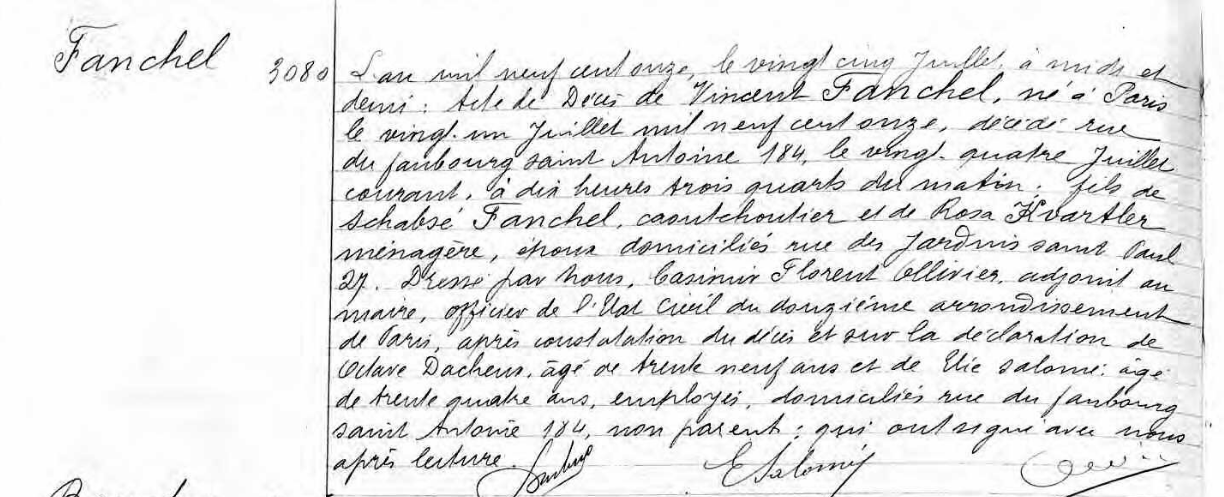 Fanchel
3080
L'an mil neuf cent onze, le vingt cinq Juillet, à midi et
demi: Acte de Décès de Vincent Fanchel, né à Paris
le vingt-un Juillet mil neuf cent onze, décédé rue
du faubourg saint Antoine 184, le vingt-quatre Juillet
courant, à dix heures trois quarts du matin; fils de
Schabsé Fanchel, caoutchoutier et de Rosa Kvartler
ménagère, époux domiciliés rue des Jardins saint Paul
27. Dressé par Nous, Casimir Florent Ollivier, adjoint au
maire, officier de l'Etat Civil du douzième arrondissement
de Paris, après constatation du décès et sur la déclaration de
Octave Dacheux, âgé de trente neuf ans et de Elie Salomé: âgé
de trente quatre ans, employés, domiciliés rue du faubourg
saint Antoine 184, non parent: qui ont signé avec nous
après lecture.
ESalomé